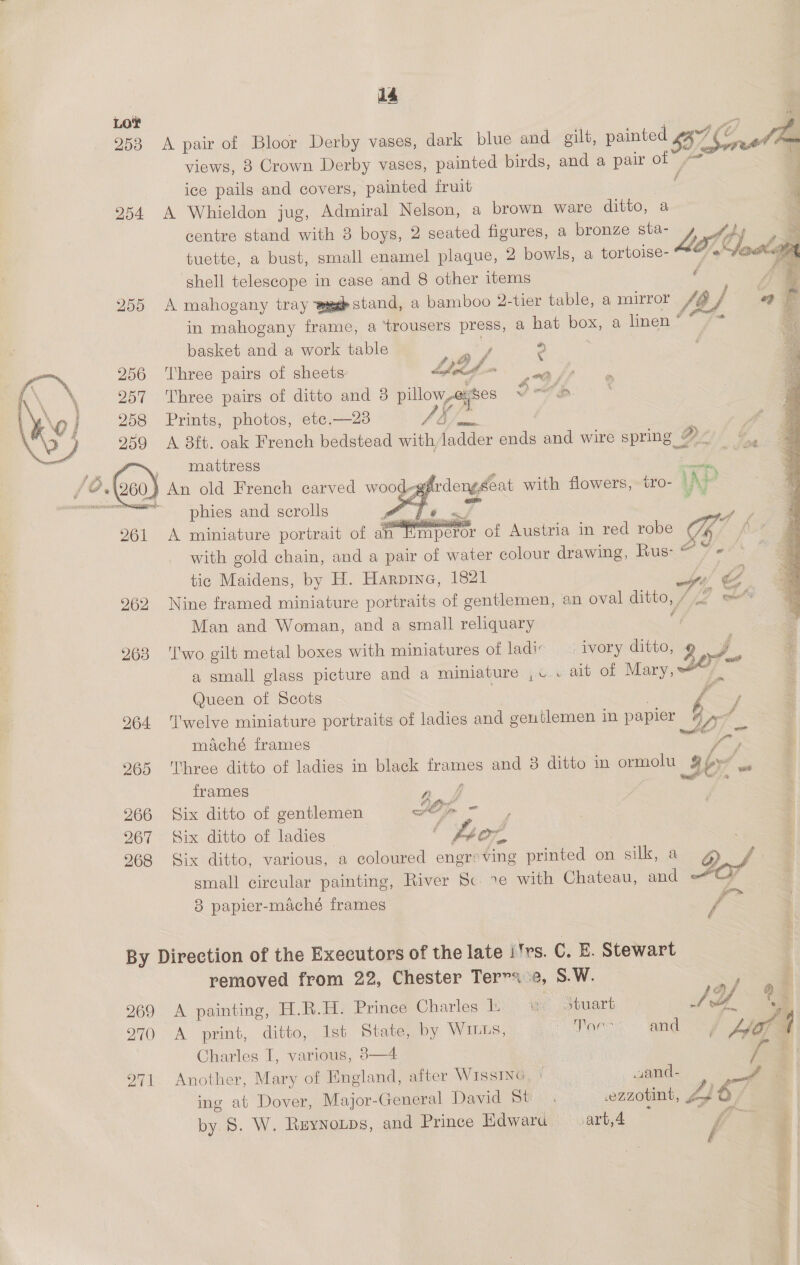 14
LOT
253 A pair of Bloor Derby vases, dark blue and gilt, painted
views, 3 Crown Derby vases, painted birds, and a pair of
ice pails and covers, painted fruit
254 A Whieldon jug, Admiral Nelson, a brown ware ditto, a
centre stand with 3 boys, 2 seated figures, a bronze sta-
tuette, a bust, small enamel plaque, 2 bowls, a tortoise-
shell telescope in case and 8 other items
255 A mahogany tray stand, a bamboo 2-tier table, a mirror
in mahogany frame, a trousers press, a hat box, a linen
basket and a work table
256 Three pairs of sheets
257 Three pairs of ditto and 3 pillow
258 Prints, photos, etc.—23
259 A 3ft. oak French bedstead with ladder ends and wire spring
mattress
260 An old French carved wood seat with flowers, tro-
phies and scrolls
261 A miniature portrait of an Emperor of Austria in red robe
with gold chain, and a pair of water colour drawing, Rus-
tic Maidens, by H. HARDING, 1821
262 Nine framed miniature portraits of gentlemen, an oval ditto,
Man and Woman, and a small reliquary
263 Two gilt metal boxes with miniatures of ladi ivory ditto,
a small glass picture and a miniature ait of Mary,
Queen of Scots
264 Twelve miniature portraits of ladies and gentlemen in papier
maché frames
265 Three ditto of ladies in black frames and 3 ditto in ormolu
frames
266 Six ditto of gentlemen
267 Six ditto of ladies
268 Six ditto, various, a coloured engraving printed on silk, a
small circular painting, River Sc ne with Chateau, and
3 papier-mâché frames
By Direction of the Executors of the late Mrs. C. E. Stewart
removed from 22, Chester Terrace, S.W.
269 A painting, H.R.H. Prince Charles E Stuart
270 A print, ditto, 1st State, by WILLS, and
Charles I, various, 3—4
271 Another, Mary of England, after WISSING, and-
ing at Dover, Major-General David St ezzotint,
by S. W. REYNOLDS, and Prince Edward art,4